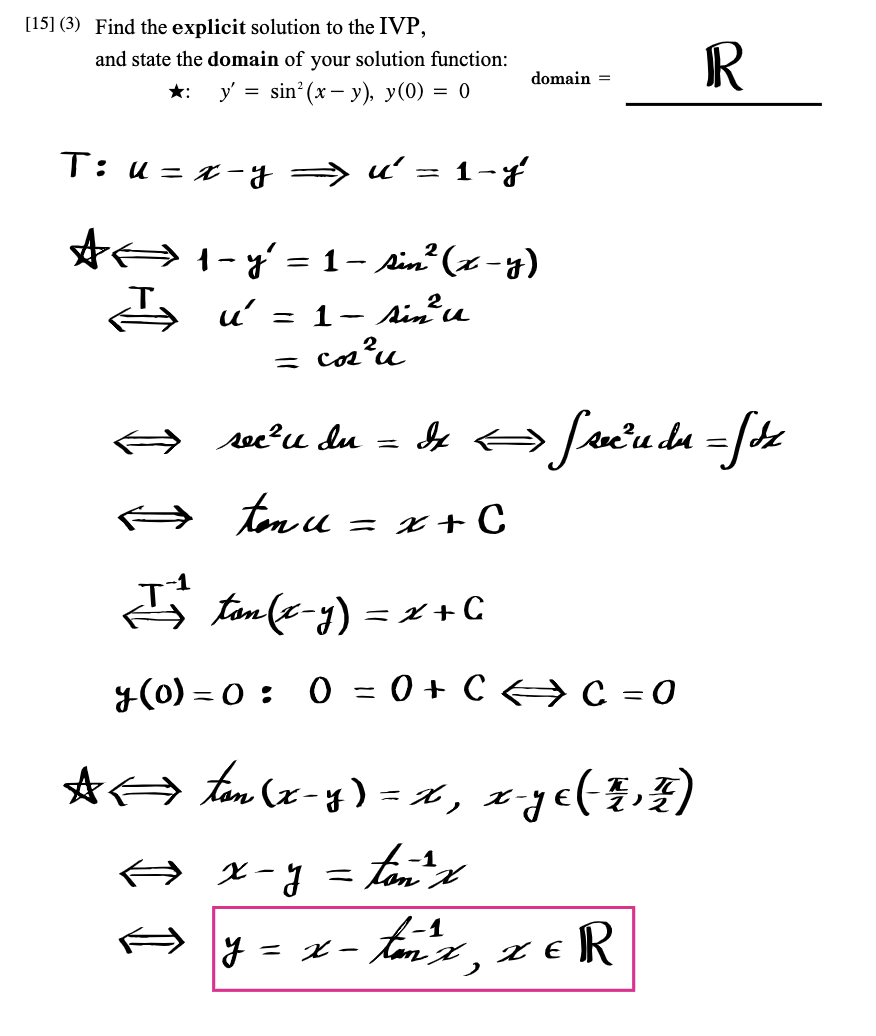 [15] (3) Find the explicit solution to the IVP,
and state the domain of your solution function:
★: y′ = sin²(x − y), y(0) = 0
domain = ℝ
T: u = x − y ⟹ u′ = 1 − y′
☆ ⟺ 1 − y′ = 1 − sin²(x − y)
⟺ᵀ u′ = 1 − sin²u
= cos²u
⟺ sec²u du = dx ⟺ ∫sec²u du = ∫dx
⟺ tan u = x + C
⟺ T⁻¹ tan(x − y) = x + C
y(0) = 0 : 0 = 0 + C ⟺ C = 0
☆ ⟺ tan(x − y) = x, x − y ∈ (−π/2, π/2)
⟺ x − y = tan⁻¹x
⟺ y = x − tan⁻¹x, x ∈ ℝ